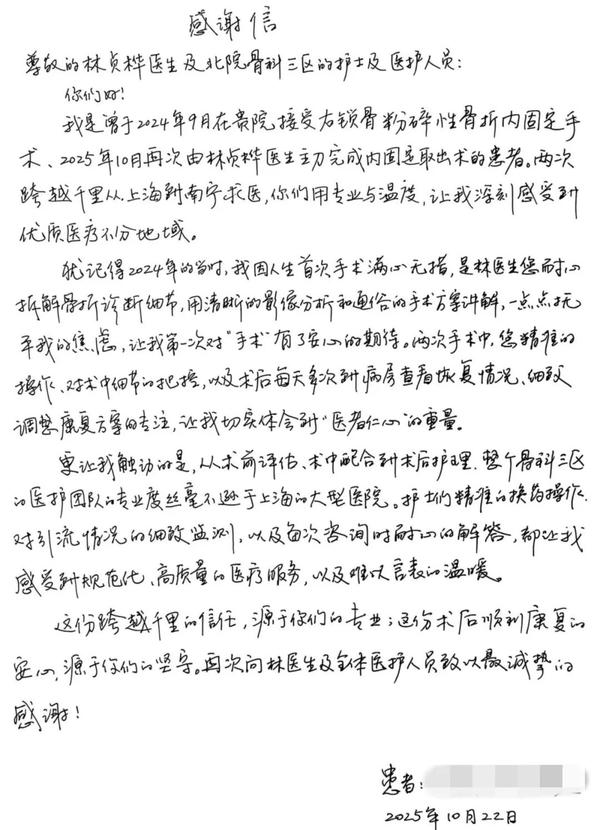 感谢信
尊敬的林贞桦医生及北院骨科三区的护士及医护人员:
你们好!
我是曾于2024年9月在贵院接受右锁骨粉碎性骨折内固定手
术、2025年10月再次由林贞桦医生主刀完成内固定取出术的患者。两次
跨越千里从上海到南宁求医,你们用专业与温度,让我深刻感受到
优质医疗不分地域。
犹记得2024年的当时,我因人生首次手术满心无措,是林医生您耐心
拆解骨折诊断细节,用清晰的影像分析和通俗的手术方案讲解,一点点抚
平我的焦虑,让我第一次对"手术"有了安心的期待。两次手术中,您精准的
操作、对术中细节的把控,以及术后每天多次到病房查看恢复情况、细致
调整康复方案的专注,让我切实体会到"医者仁心"的重量。
更让我触动的是,从术前评估、术中配合到术后护理,整个骨科三区
的医护团队的专业度丝毫不逊于上海的大型医院。护士们精准的换药操作、
对引流情况的细致监测,以及每次咨询时耐心的解答,都让我
感受到规范化、高质量的医疗服务,以及难以言表的温暖。
这份跨越千里的信任,源于你们的专业;这份术后顺利康复的
安心,源于你们的坚守。再次向林医生及全体医护人员致以最诚挚的
感谢!
患者:
2025年10月22日